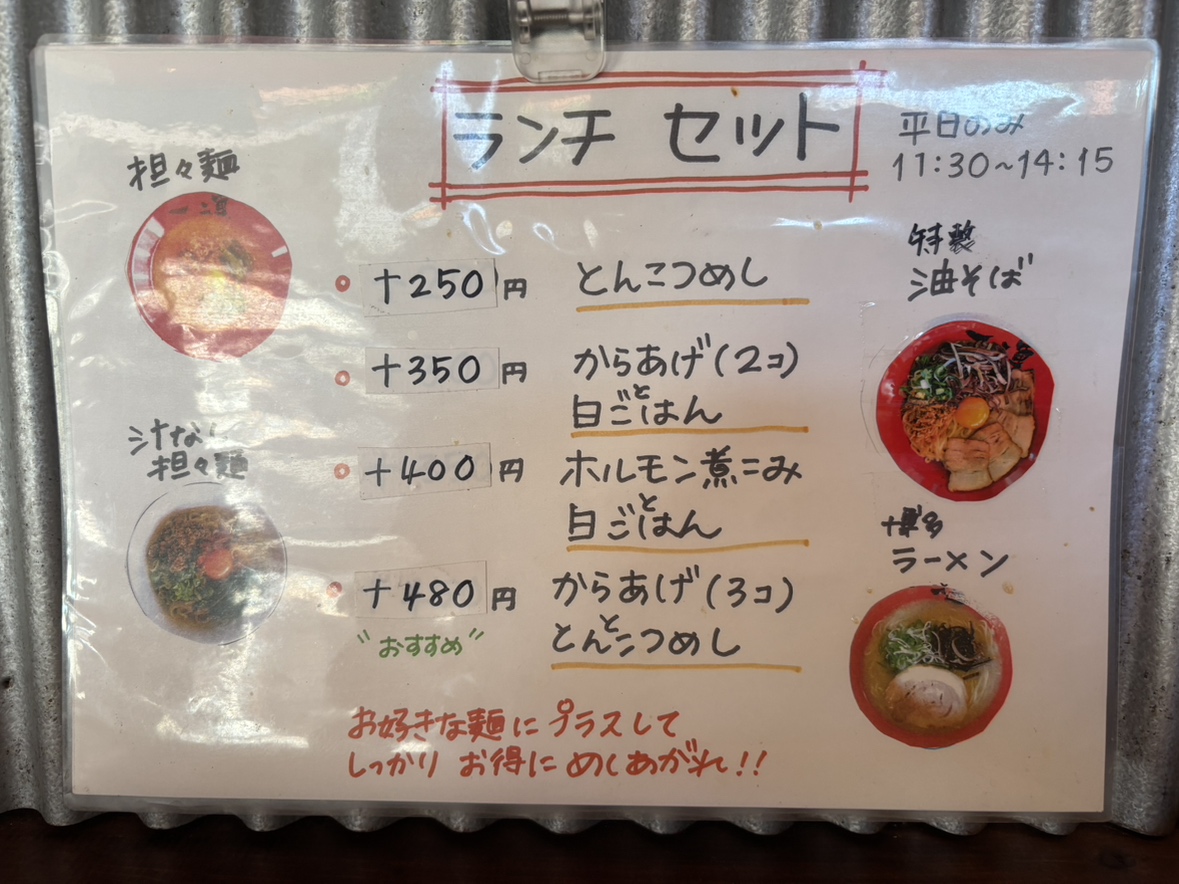 ランチ セット
平日のみ
11:30~14:15
担々麺
汁なし
担々麺
+250円 とんこつめし
+350円 からあげ(2コ)
と
白ごはん
+400円 ホルモン煮こみ
と
白ごはん
+480円 からあげ(3コ)
と
"おすすめ" とんこつめし
特製
油そば
博多
ラーメン
お好きな麺にプラスして
しっかり お得に めしあがれ!!